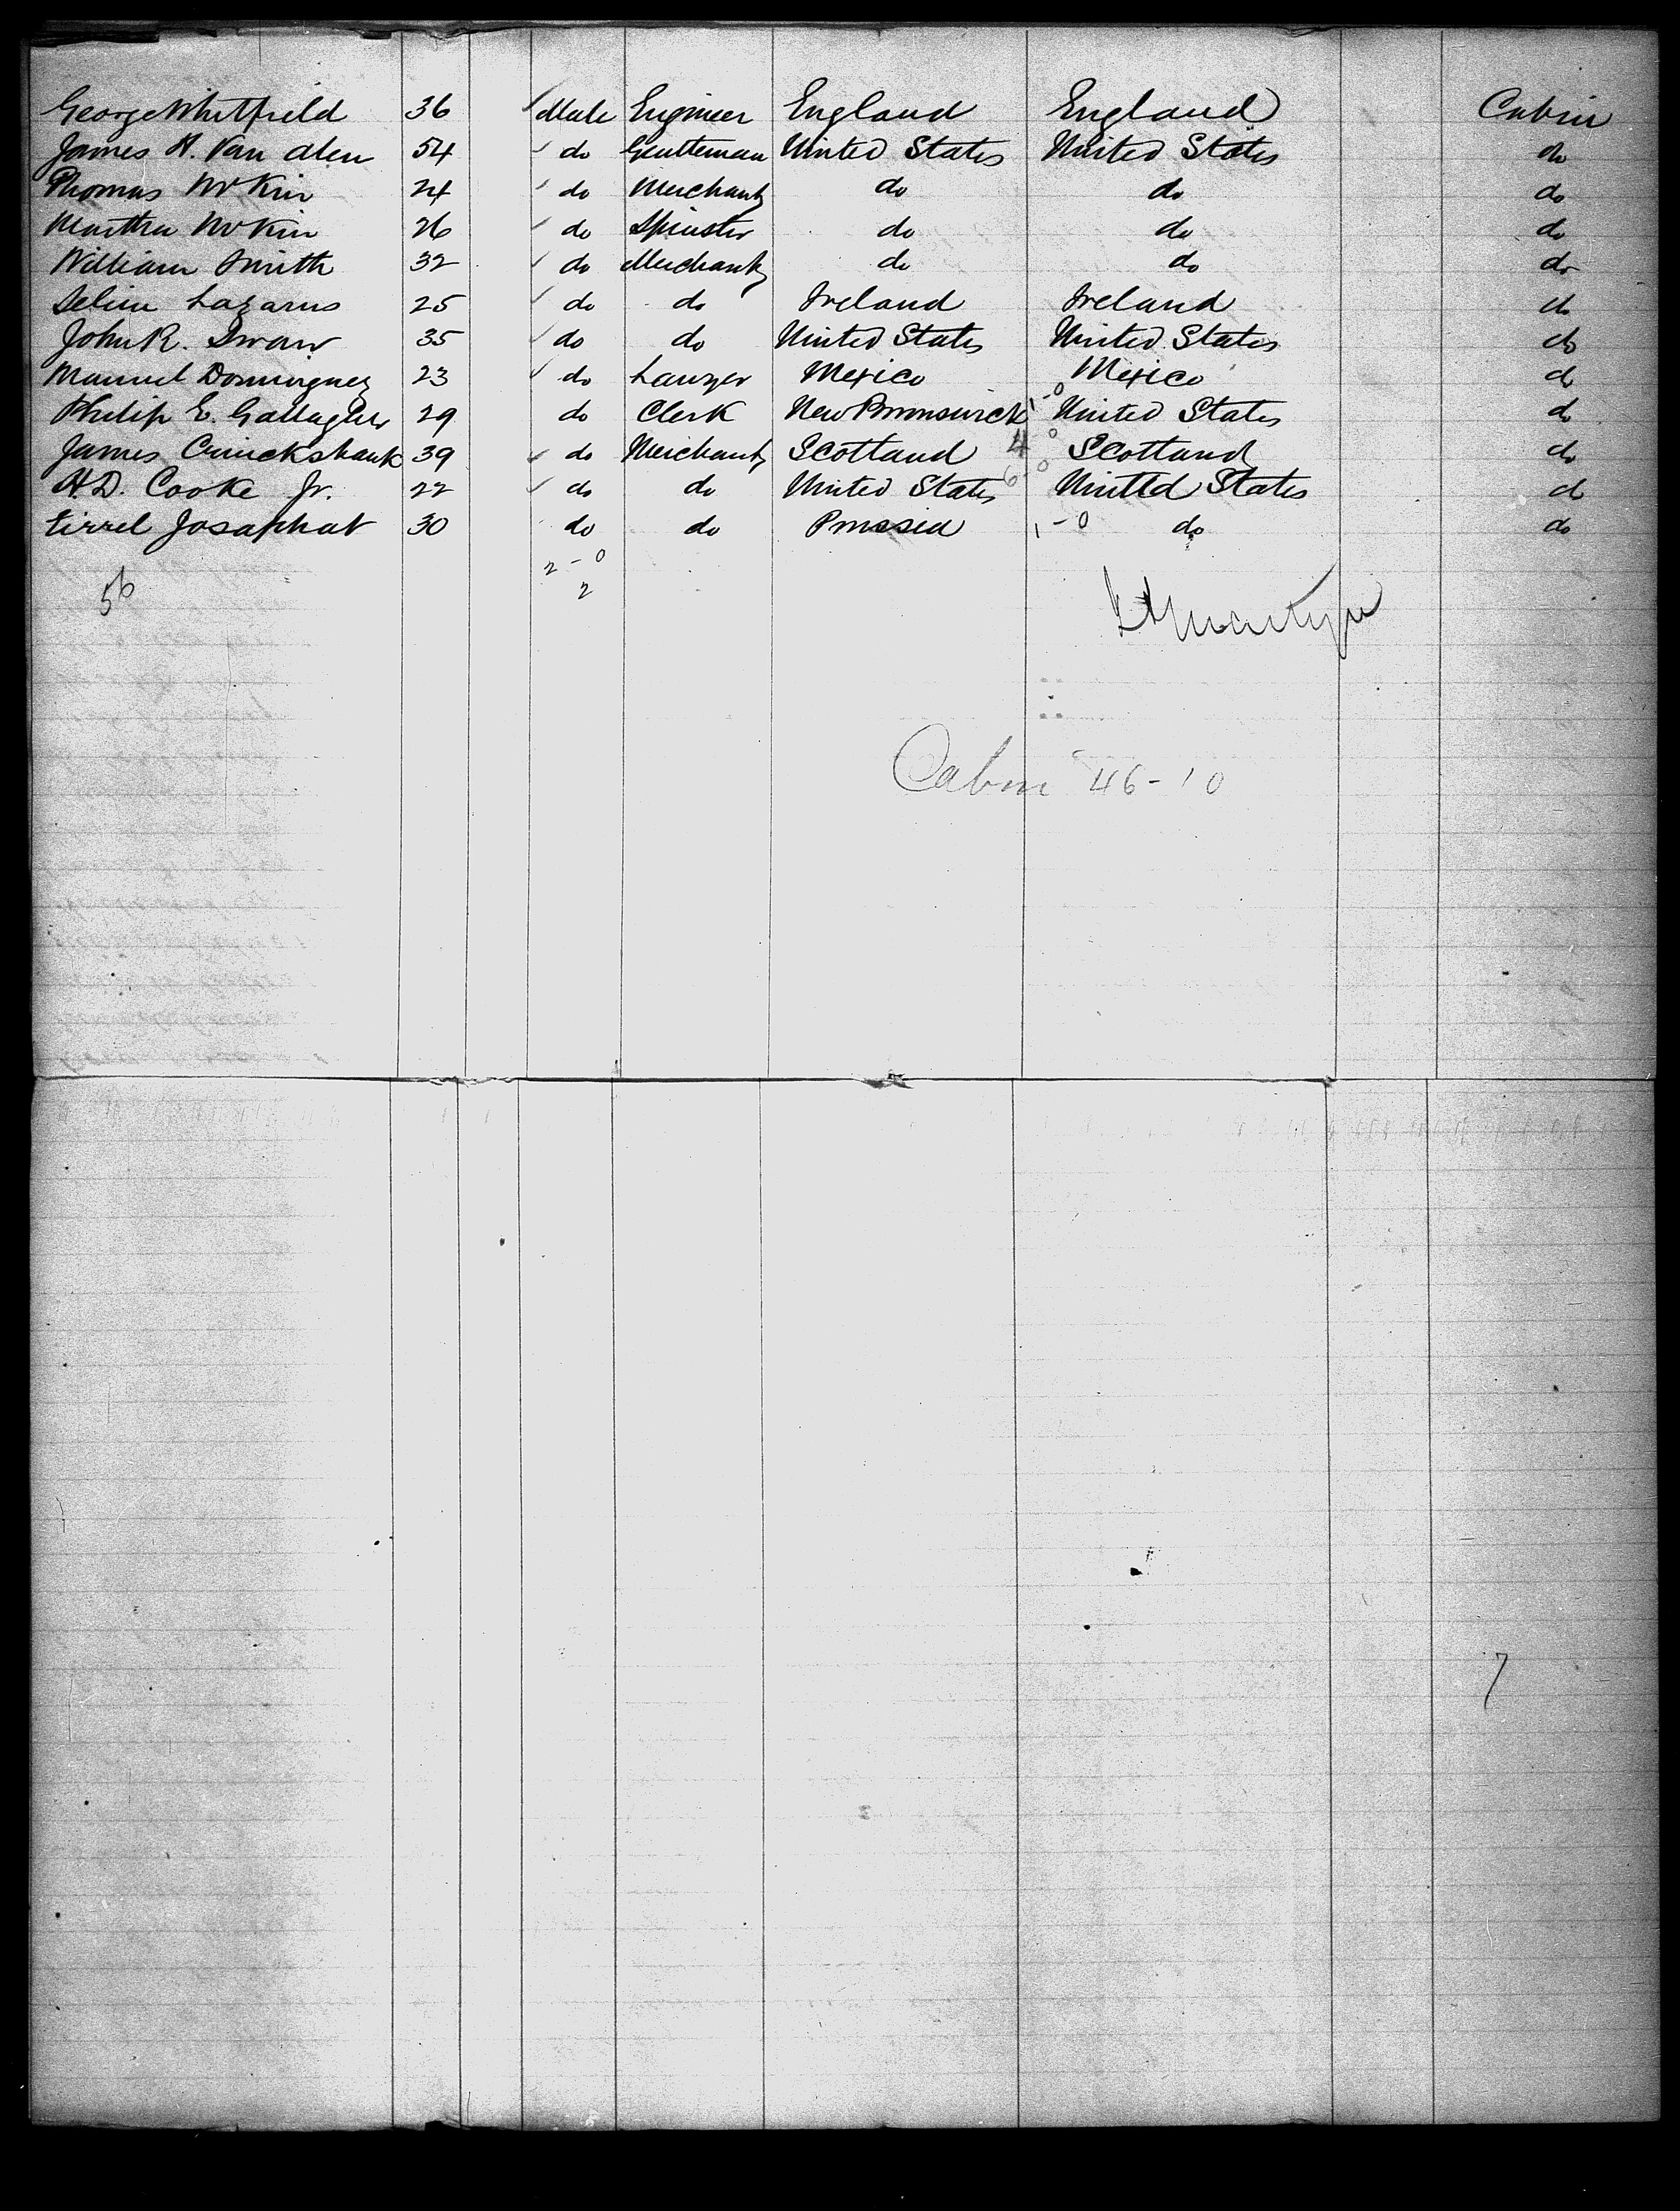 George Whitfield 36 Male Engineer England England Cabin
James H. Van Alen 54 do Gentleman United States United States do
Thomas McKin 24 do Merchant do do do
Martha McKin 26 do Spinster do do do
William Smith 32 do Merchant do do do
Selim Lazarus 25 do do Ireland Ireland do
John R. Swan 35 do do United States United States do
Manuel Dominguez 23 do Lawyer Mexico Mexico do
Philip E. Gallagher 29 do Clerk New Brunswick 1-0 United States do
James Cruickshank 39 do Merchant Scotland 4 0 Scotland do
H.D. Cooke Jr. 22 do do United States 6-0 United States do
Josaphat 30 do do Prussia 1-0 do do
2-0
56 2
Cabin 46-10
7